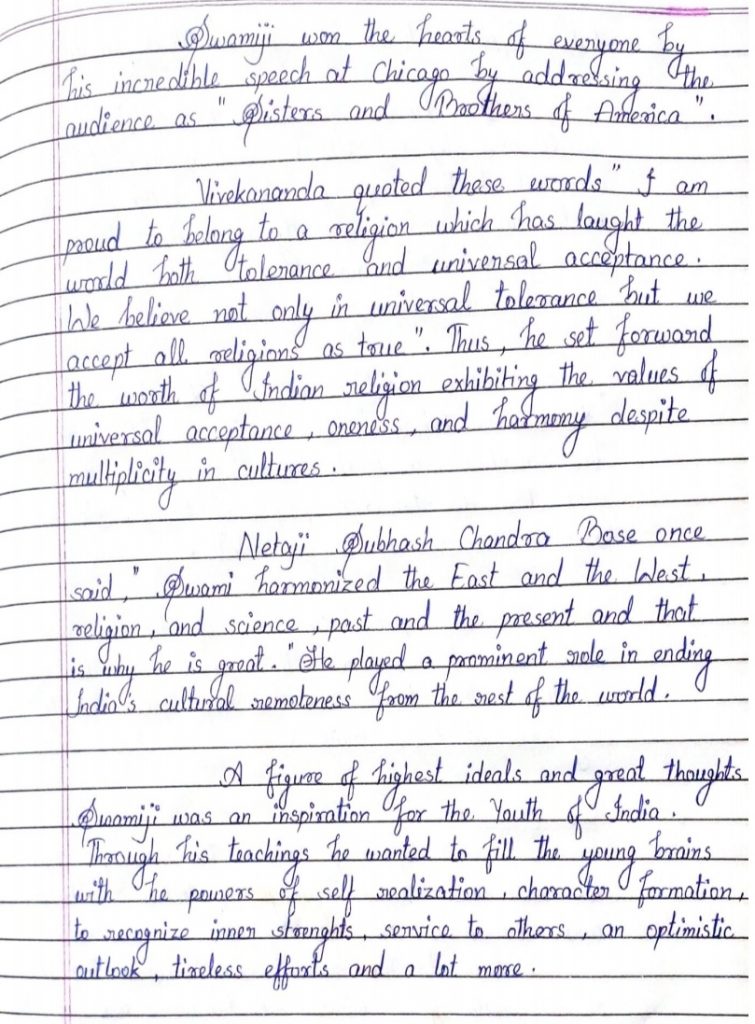 Swamiji won the hearts of everyone by
his incredible speech at Chicago by addressing the
audience as "Sisters and Brothers of America".
Vivekananda quoted these words "I am
proud to belong to a religion which has laught the
world both tolerance and universal acceptance.
We believe not only in universal tolerance but we
accept all religions as true". Thus, he set forward
the worth of Indian religion exhibiting the values of
universal acceptance, oneness, and harmony despite
multiplicity in cultures.
Netaji Subhash Chandra Base once
said," Swami harmonized the East and the West,
religion, and science, past and the present and that
is why he is great." He played a prominent role in ending
India's cultural remoteness from the rest of the world.
A figure of highest ideals and great thoughts
Swamiji was an inspiration for the Youth of India.
Through his teachings he wanted to fill the young brains
with he powers of self realization, character formation,
to recognize inner strenghts, service to others, an optimistic
outlook, tireless efforts and a lot more.